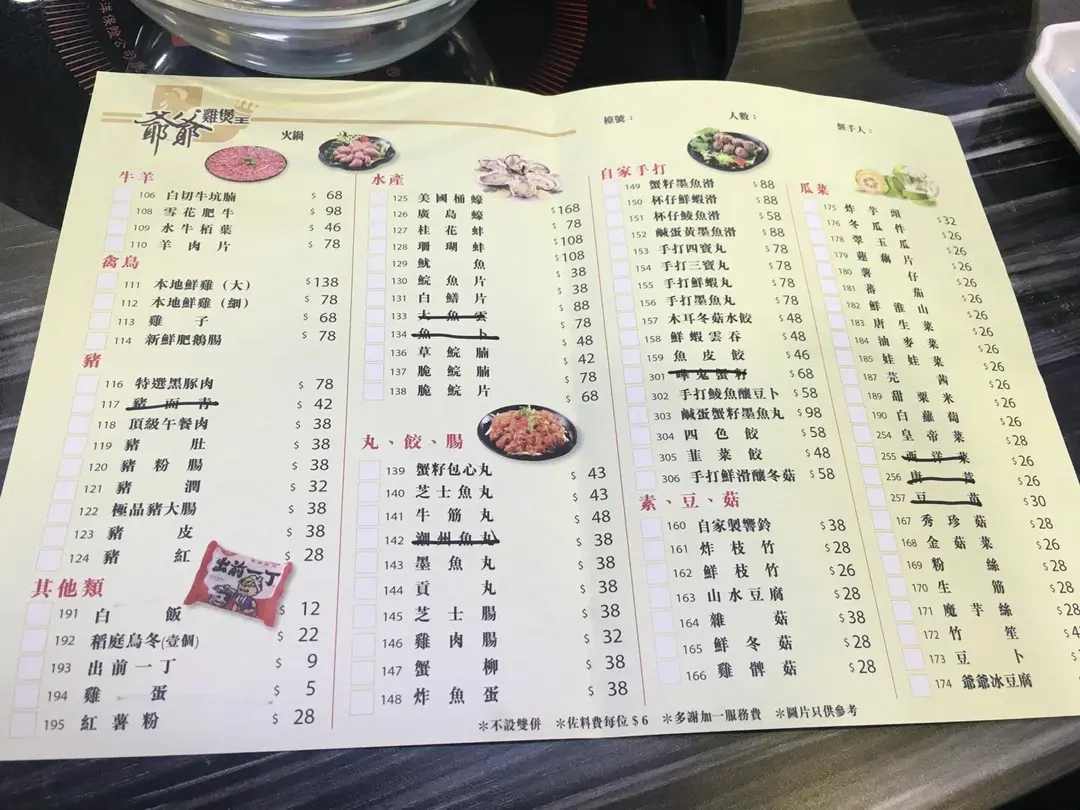 爺爺雞煲王
火鍋
檯號：
人數：
經手人：
牛羊
106 白切牛坑腩 $ 68
108 雪花肥牛 $ 98
109 水牛栢葉 $ 46
110 羊肉片 $ 78
禽鳥
111 本地鮮雞（大） $ 138
112 本地鮮雞（細） $ 78
113 雞子 $ 68
114 新鮮肥鵝腸 $ 78
豬
116 特選黑豚肉 $ 78
117 豬面青 $ 42
118 頂級午餐肉 $ 38
119 豬肚 $ 38
120 豬粉腸 $ 38
121 豬潤 $ 32
122 極品豬大腸 $ 38
123 豬皮 $ 38
124 豬紅 $ 28
出前一丁
其他類
191 白飯 $ 12
192 稻庭烏冬(壹個) $ 22
193 出前一丁 $ 9
194 雞蛋 $ 5
195 紅薯粉 $ 28
水產
125 美國桶蠔 $168
126 廣島蠔 $ 78
127 桂花蚌 $108
128 珊瑚蚌 $108
129 魷魚 $ 38
130 鯇魚片 $ 38
131 白鱔片 $ 88
133 大魚雲 $ 78
134 魚卜 $ 48
136 草鯇腩 $ 42
137 脆鯇腩 $ 78
138 脆鯇片 $ 68
丸、餃、腸
139 蟹籽包心丸 $ 43
140 芝士魚丸 $ 43
141 牛筋丸 $ 48
142 潮州魚丸 $ 38
143 墨魚丸 $ 38
144 貢丸 $ 38
145 芝士腸 $ 38
146 雞肉腸 $ 32
147 蟹柳 $ 38
148 炸魚蛋 $ 38
自家手打
149 蟹籽墨魚滑 $88
150 杯仔鮮蝦滑 $88
151 杯仔鯪魚滑 $58
152 鹹蛋黃墨魚滑 $88
153 手打四寶丸 $78
154 手打三寶丸 $78
155 手打鮮蝦丸 $78
156 手打墨魚丸 $78
157 木耳冬菇水餃 $48
158 鮮蝦雲吞 $48
159 魚皮餃 $46
301 嘩鬼蟹籽 $68
302 手打鯪魚釀豆卜 $58
303 鹹蛋蟹籽墨魚丸 $98
304 四色餃 $58
305 韮菜餃 $48
306 手打鮮滑釀冬菇 $58
素、豆、菇
160 自家製響鈴 $38
161 炸枝竹 $28
162 鮮枝竹 $26
163 山水豆腐 $28
164 雜菇 $38
165 鮮冬菇 $28
166 雞髀菇 $28
瓜菜
175 炸芋頭 $32
176 冬瓜件 $26
178 翠玉瓜 $26
179 蓮藕片 $26
180 薯仔 $26
181 蕃茄 $26
182 鮮淮山 $26
183 唐生菜 $26
184 油麥菜 $26
185 娃娃菜 $26
187 芫茜 $26
189 甜粟米 $26
190 白蘿蔔 $26
254 皇帝菜 $28
255 西洋菜 $26
256 唐 $26
257 豆苗 $30
167 秀珍菇 $28
168 金菇菜 $26
169 粉絲 $28
170 生筋 $28
171 魔芋絲 $28
172 竹笙
173 豆卜
174 爺爺冰豆腐
＊不設雙併 ＊佐料費每位 $ 6 ＊多謝加一服務費 ＊圖片只供參考